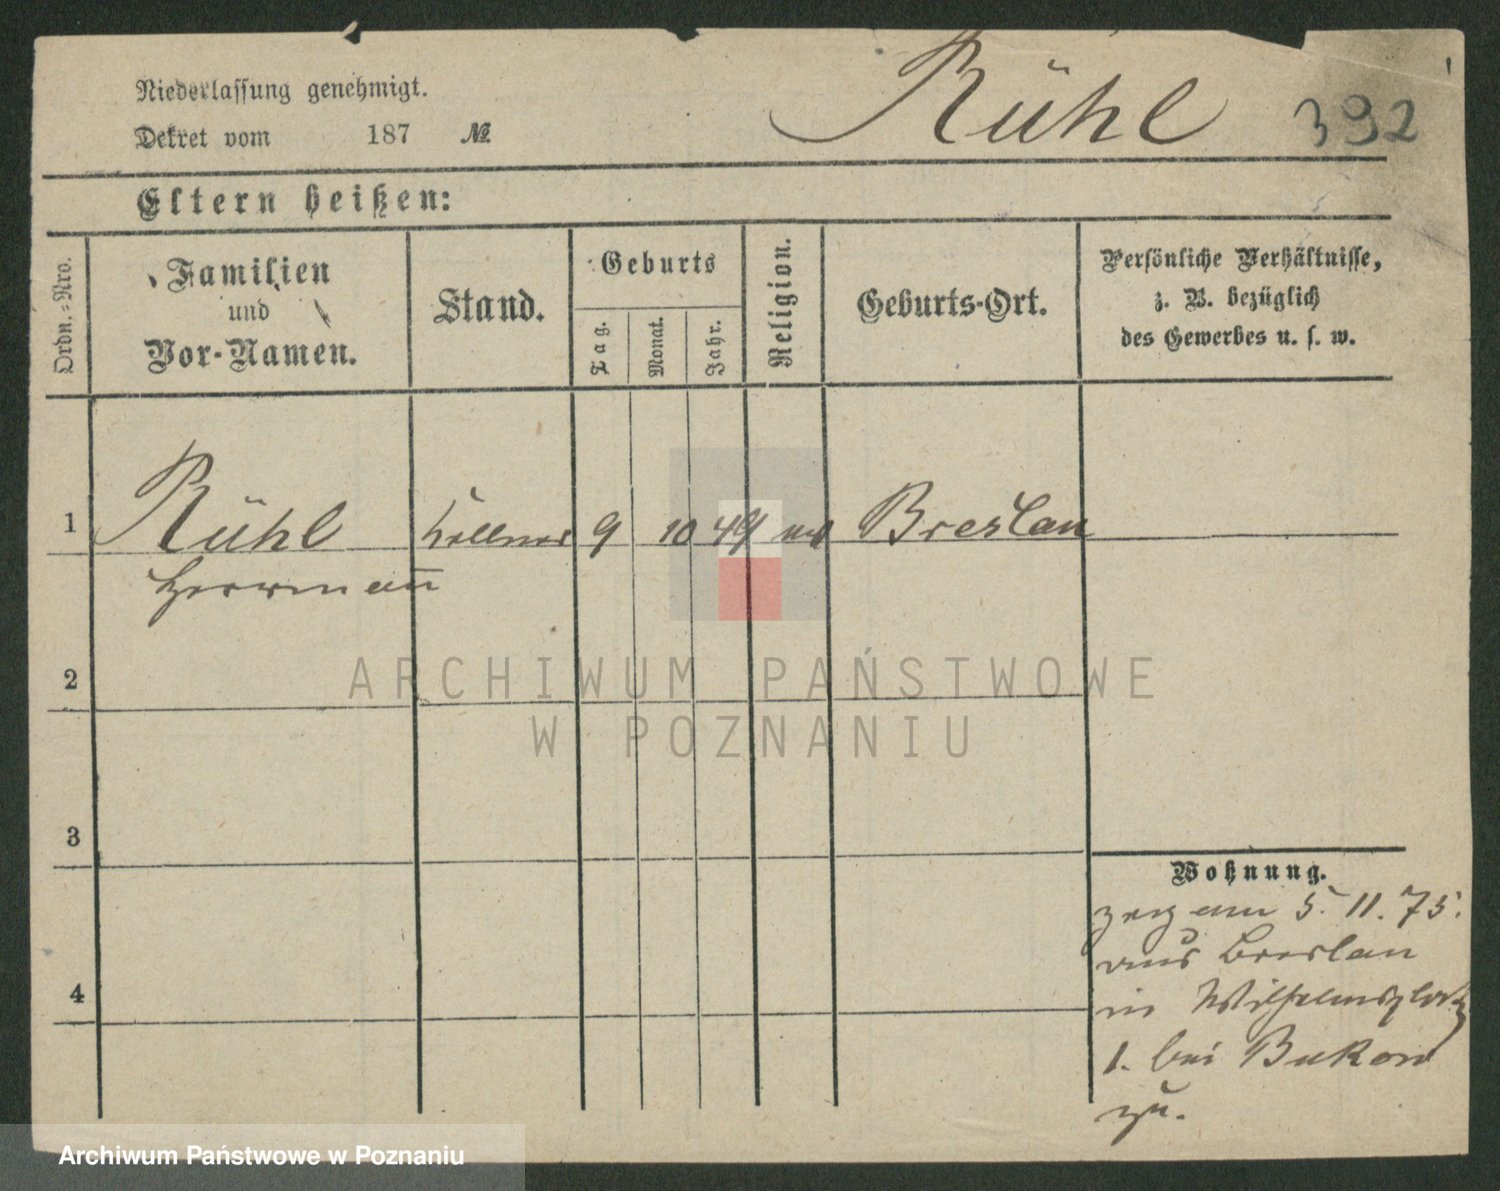 Niederlassung genehmigt.
Dekret vom 187 №
Rühl 392
Eltern heißen:
Ordn.-Nro.
Familien
und
Vor-Namen.
Stand.
Geburts
Tag.
Monat.
Jahr.
Religion.
Geburts-Ort.
Persönliche Verhältnisse,
z. B. bezüglich
des Gewerbes u. s. w.
1 Rühl Kellner 9 10 49 Breslau
Herrmañ
2
3
4
Wohnung.
am 5. 11. 75.
aus Breslau
in Wilhelmsplatz
1. bei Bukow
zu.
ARCHIWUM PAŃSTWOWE
W POZNANIU
Archiwum Państwowe w Poznaniu